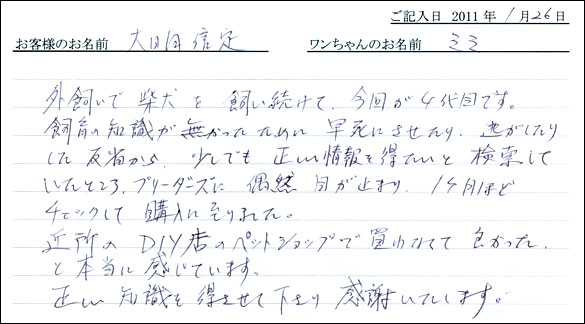 ご記入日 2011年1月26日
お客様のお名前 大日向 信定 ワンちゃんのお名前 ミミ
外飼いで柴犬を飼い続けて、今回が4代目です。
飼育の知識が無かったために早死にさせたり、逃がしたり
した反省から、少しでも正しい情報を得たいと検索して
いたところ、ブリーダーズに偶然目が止まり、1ヶ月ほど
チェックして購入に至りました。
近所のDIY店のペットショップで買わなくて良かった、
と本当に感じています。
正しい知識を得させて下さり感謝いたします。